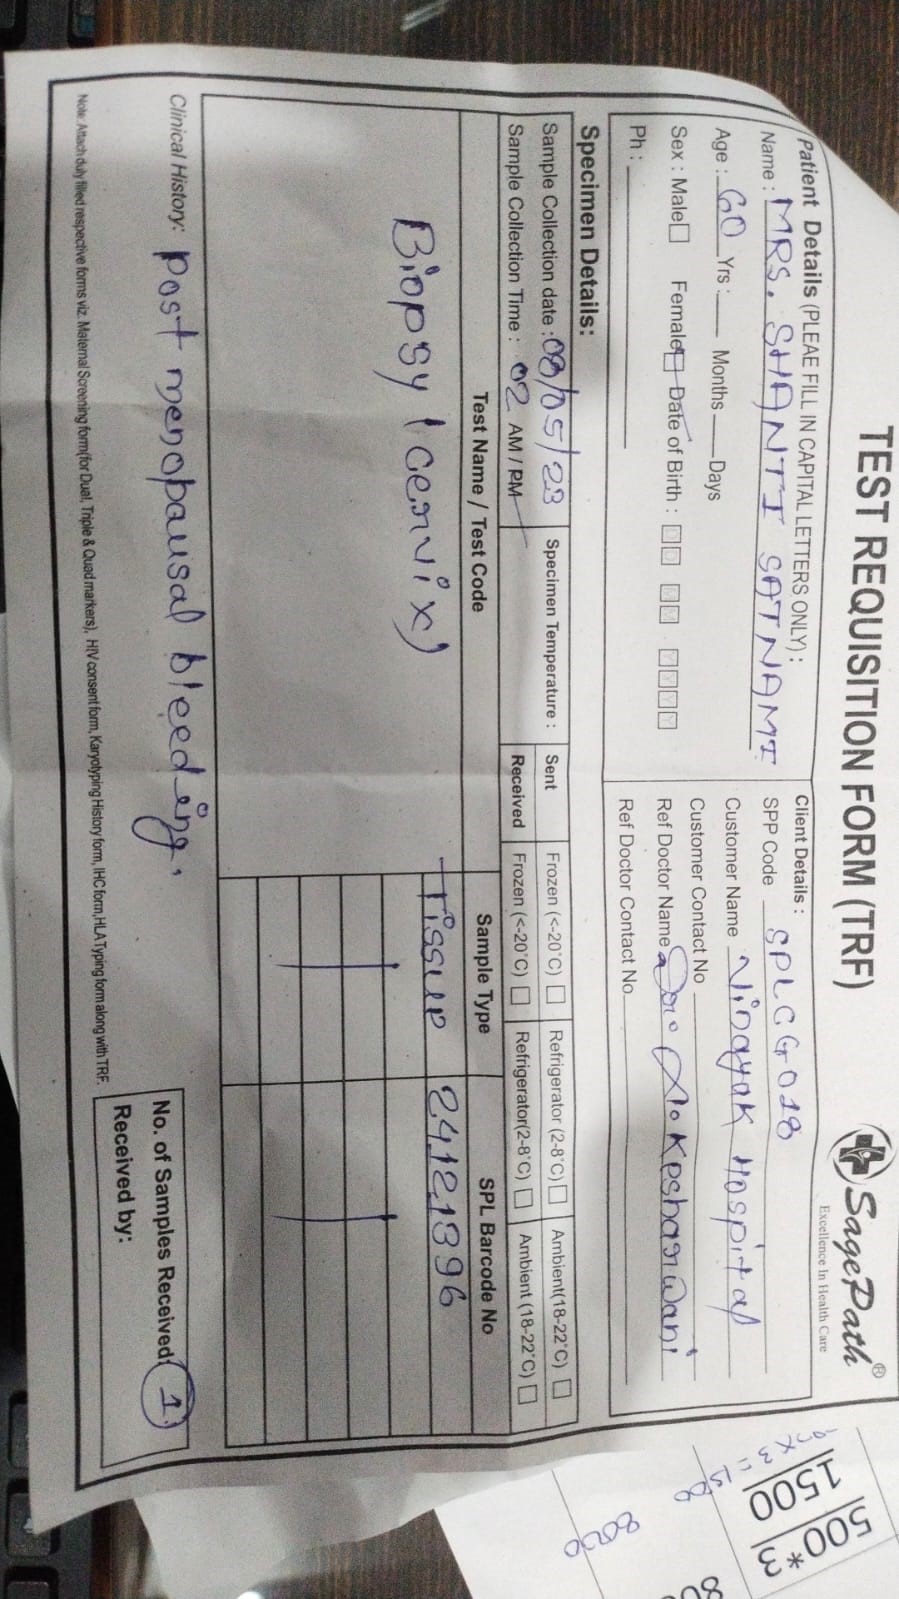 TEST REQUISITION FORM (TRF)
SagePath®
Excellence In Health Care
Patient Details (PLEAE FILL IN CAPITAL LETTERS ONLY) :
Name : MRS. SHANTI SATNAMI
Age : 60 Yrs : Months Days
Sex : Male Female Date of Birth : D D M M Y Y Y Y
Ph :
Client Details :
SPP Code SPLCG018
Customer Name Vinayak Hospital
Customer Contact No
Ref Doctor Name Kesharwani
Ref Doctor Contact No.
Specimen Details:
Sample Collection date : 08/05/23
Sample Collection Time : 02 AM / PM
Specimen Temperature :
Sent Frozen (<-20°C) Refrigerator (2-8°C) Ambient(18-22°C)
Received Frozen (<-20°C) Refrigerator(2-8°C) Ambient (18-22°C)
Test Name / Test Code Sample Type SPL Barcode No
Biopsy (cervix) Tissue 24121396
Clinical History: Post menopausal bleeding.
No. of Samples Received: 1
Received by:
Note: Attach duly filled respective forms viz. Maternal Screening form(for Dual, Triple & Quad markers), HIV consent form, Karyotyping History form, IHC form, HLA Typing form along with TRF.
500*3
1500